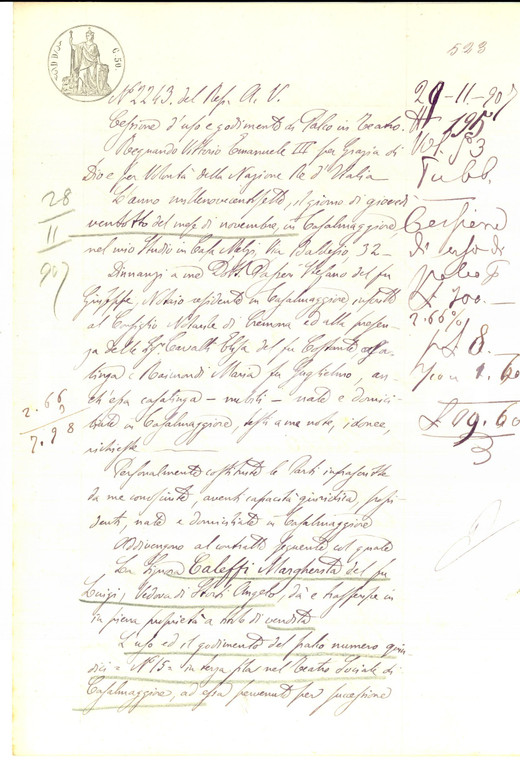 523
C. 50
N° 2243. del Rep. A. V.
Cessione d'uso e godimento di Palco in Teatro.
Regnando Vittorio Emanuele III per Grazia di
Dio e per Volontà della Nazione Re d'Italia
L'anno millenovecentosette, il giorno di giovedì
ventotto del mese di novembre, in Casalmaggiore
nel mio Studio in Casa Via Baldesio, 32 -
Dinnanzi a me Dtt. Stefano del fu
Giuseppe, Notaio residente in Casalmaggiore inscritto
al Consiglio Notarile di Cremona ed alla presen-
za delle Sig.re Cavalli Elisa del fu Costante casa-
linga e Raimondi Maria fu Guglielmo, an-
ch'essa casalinga - nubili - nate e domici-
liate in Casalmaggiore, testi a me note, idonee,
richieste
Personalmente costituite le Parti infrascritte
da me conosciute, aventi capacità giuridica, possi-
denti, nate e domiciliate in Casalmaggiore
Addivengono al contratto seguente col quale
La Signora Caleffi Margherita del fu
Luigi, Vedova di Storti Angelo, dà e trasferisce in
in piena proprietà a titolo di vendita
L'uso ed il godimento del palco numero quin-
dici = N° 15 = in terza fila nel Teatro Sociale di
Casalmaggiore, ad essa pervenuto per successione
28
11
907
2.66
3
7.98
29-11-907
N 195
Vol. 53
Pubb.
Cessione
di uso di
palco
£ 300.-
2.66%
£ 8.
1.60
£ 09.60
3